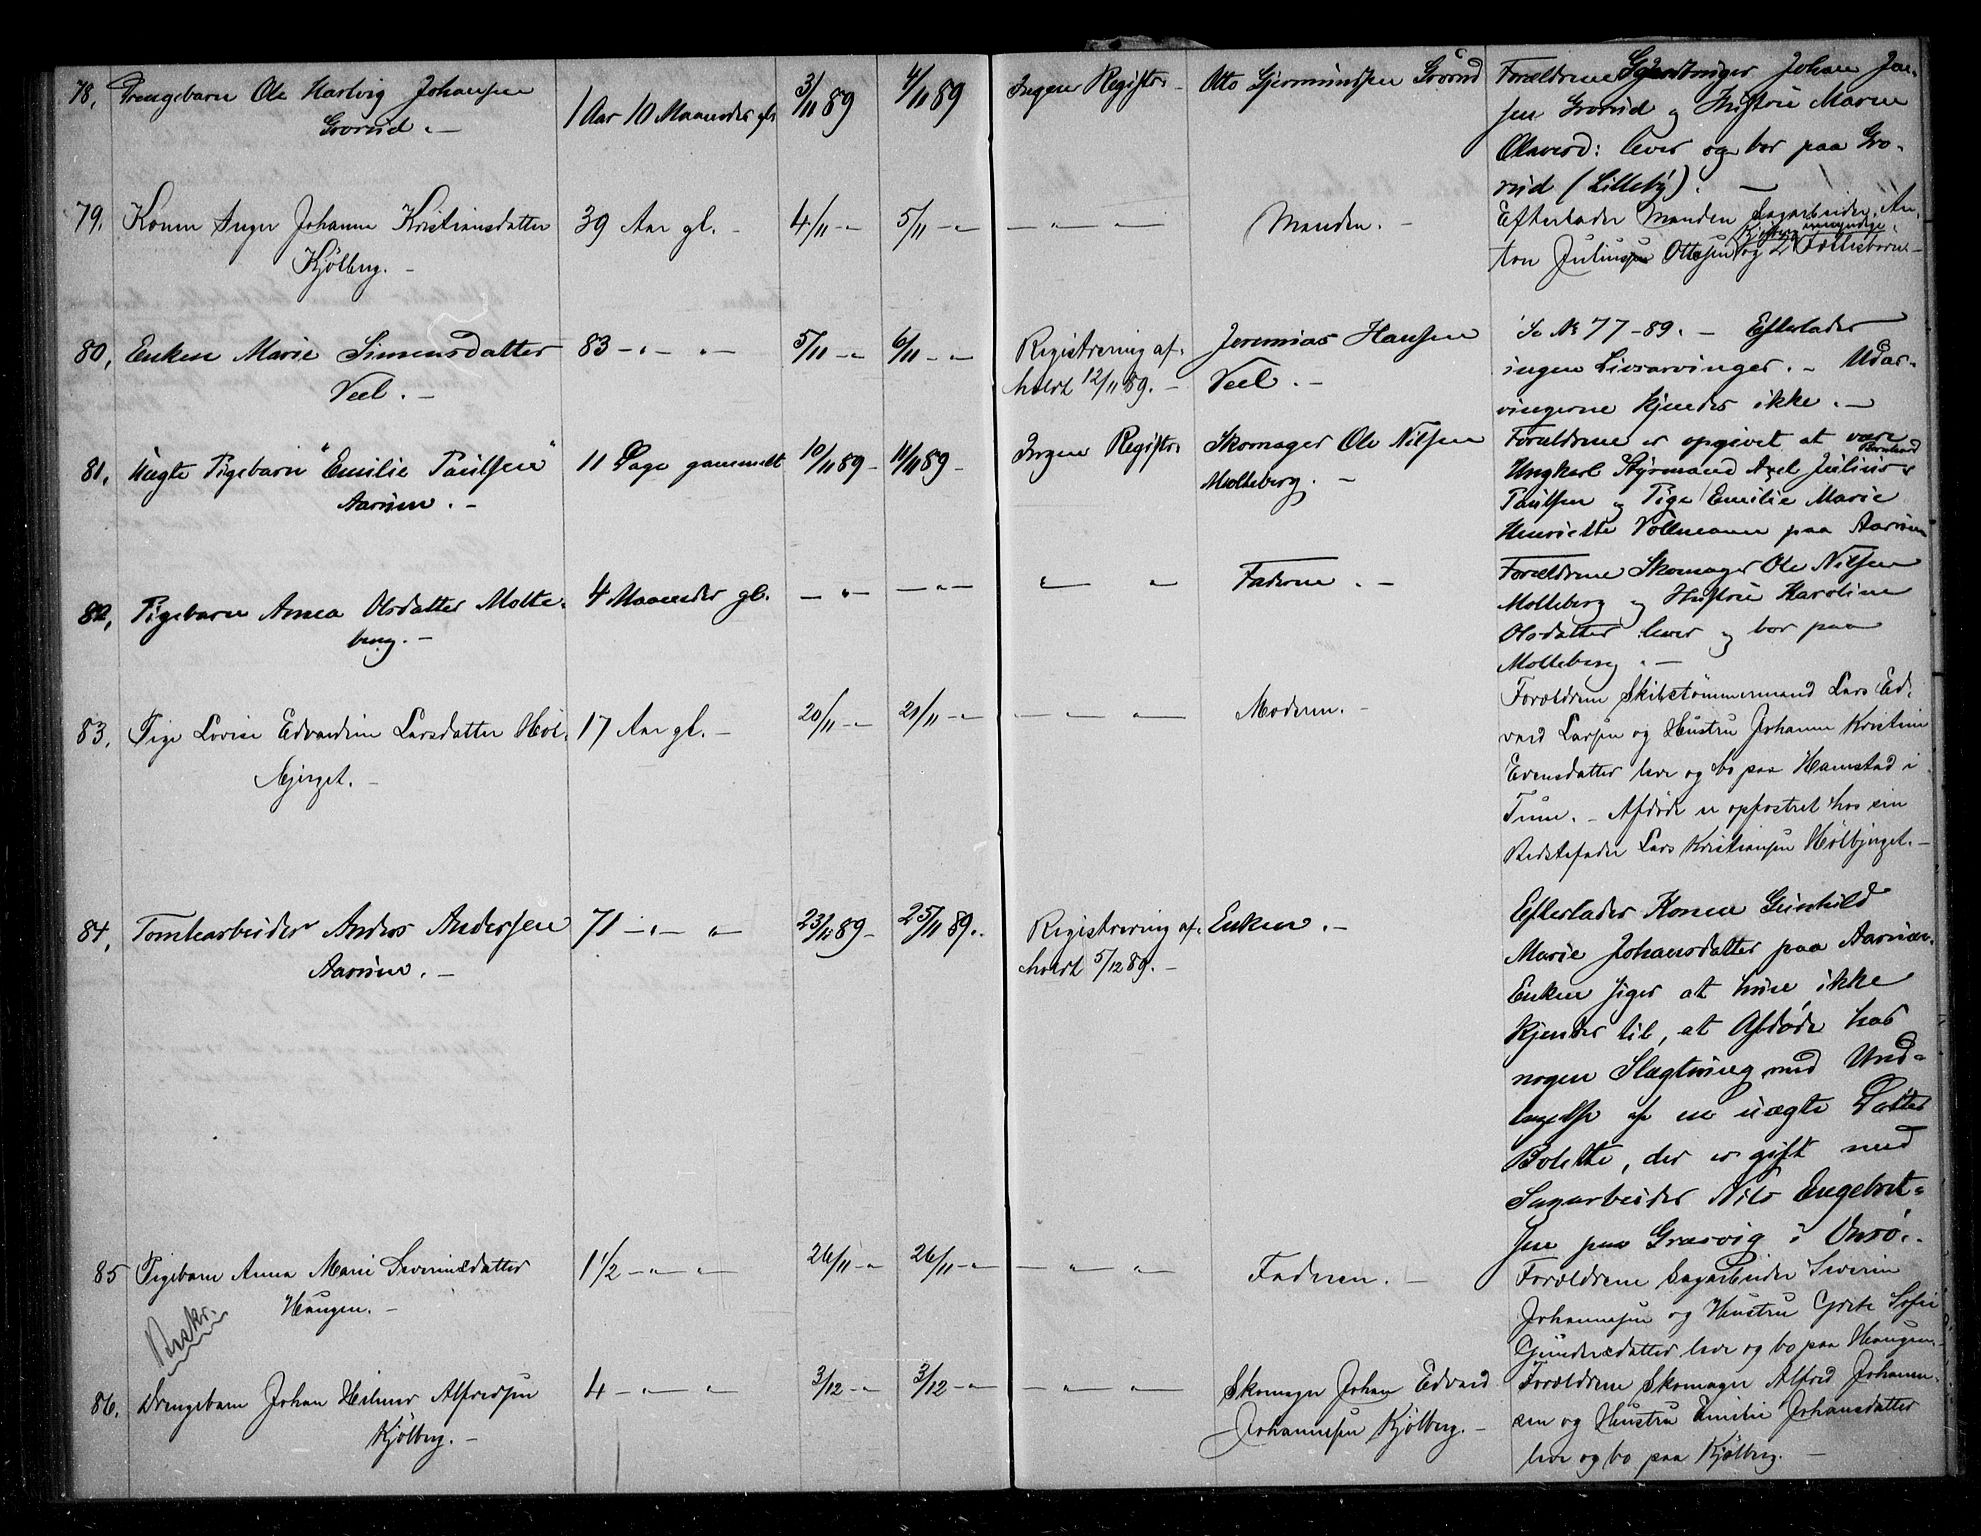 78. Drengebarn Ole Hartvig Johansen
Grorud. —
1 Aar 10 Maaneder gl.
3/11 89
4/11 89
Ingen Registr.
Otto Gjermundsen Grorud
Forældrene Johan Jan-
sen Grorud og Hustru Maren
Olavesd: lever og bor paa Gro-
rud (Lilleby). —
79. Konen Inger Johanne Kristiansdatter
Kjölberg. —
39 Aar gl. —
4/11 - "
5/11 - "
— " — " —
Manden. —
Efterlader Manden Sagarbeider An-
ton Julius Ottesen Kjölberg og 2 umyndige Fællesbørn. —
80, Enken Marie Simensdatter
Veel. —
83 — " — " —
5/11 — "
6/11 — "
Registrering af-
holdt 12/11 89. —
Jeremias Hansen
Veel. —
Se No 77-89. — Efterlader
ingen Livsarvinger. — Udar-
vingerne kjendes ikke. —
81, Uægte Pigebarn "Emilie Paulsen"
Aarum. —
11 Dage gammelt
10/11 89 —
11/11 89 —
Ingen Registr.
Skomager Ole Nilsen
Molteberg. —
Forældrene er opgivet at være
Ungkarl Styrmand Axel Julius Bernhard
Paulsen og Pige Emilie Marie
Henriette Vollmann paa Aarum
82, Pigebarn Anna Olsdatter Molte-
berg. —
4 Maaneder gl.
— " —
— " —
" — "
Faderen. —
Forældrene Skomager Ole Nilsen
Molteberg og Hustru Karoline
Olsdatter lever og bor paa
Molteberg. —
83, Pige Lovise Edvardine Larsdatter Höl-
bjerget. —
17 Aar gl. —
20/11 — "
21/11 — "
— " — " —
Moderen. —
Forældrene Skibstömmermand Lars Ed-
vard Larsen og Hustru Johanne Kristine
Evensdatter leve og bo paa Hannestad i
Tune. — Afdöde er opfostret hos sin
Bedstefader Lars Kristiansen Hölbjerget. —
84, Tomtearbeider Anders Andersen
Aarum. —
71 — " — "
23/11 89 —
25/11 89.
Registrering af-
holdt 5/12 89. —
Enken. —
Efterlader Konen Gunhild
Marie Johansdatter paa Aarum.
Enken siger at hun ikke
kjender til, at Afdöde har
nogen Slægtning med Und-
tagelse af en uægte Datter
Bolette, der er gift med
Sagarbeider Nils Engebret-
sen paa Græsvig i Onsö. —
85 Pigebarn Anna Marie Severinsdatter
Haugen. —
1 1/2 — " — "
26/11 — "
26/11 — "
— " — " —
Faderen. —
Forældrene Sagarbeider Severin
Johannesen og Hustru Grete Sofie
Gundersdatter leve og bo paa Haugen. —
Beskr.
86. Drengebarn Johan Hilmar Alfredsen
Kjölberg. —
4 — " — "
3/12 — "
3/12 — "
— " — " —
Skomager Johan Edvard
Johannesen Kjölberg. —
Forældrene Skomager Alfred Johann-
sen og Hustru Emilie Johansdatter
leve og bo paa Kjölberg. —